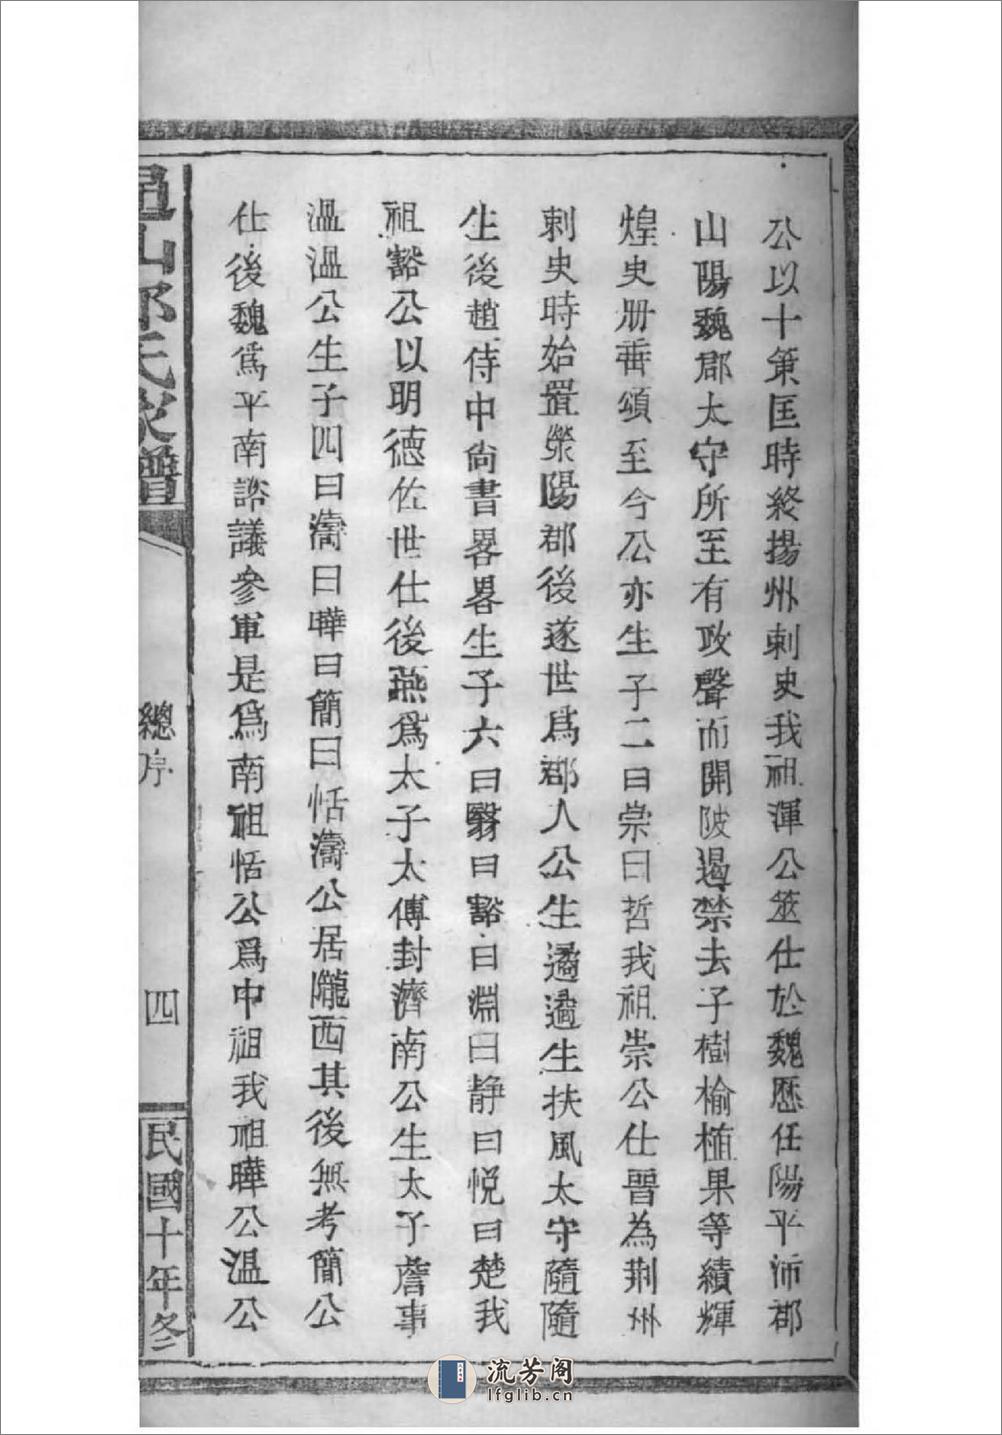 公以十策匡時終揚州刺史我祖渾公筮仕於魏歷任陽平沛郡
山陽魏郡太守所至有政聲而開陂遏禁去子樹榆植果等績輝
煌史册垂頌至今公亦生子二曰崇曰哲我祖崇公仕晋為荆州
刺史時始置滎陽郡後遂世爲郡人公生遹遹生扶風太守隨隨
生後趙侍中尙書畧畧生子六曰翳曰豁曰淵曰静曰悅曰楚我
祖豁公以明德佐世仕後燕爲太子太傅封濟南公生太子詹事
溫溫公生子四曰濤曰曄曰簡曰恬濤公居隴西其後無考簡公
仕後魏爲平南諮議參軍是爲南祖恬公爲中祖我祖曄公溫公
山郑氏家譜
總序
四
民國十年冬
流芳阁
lfglib.cn